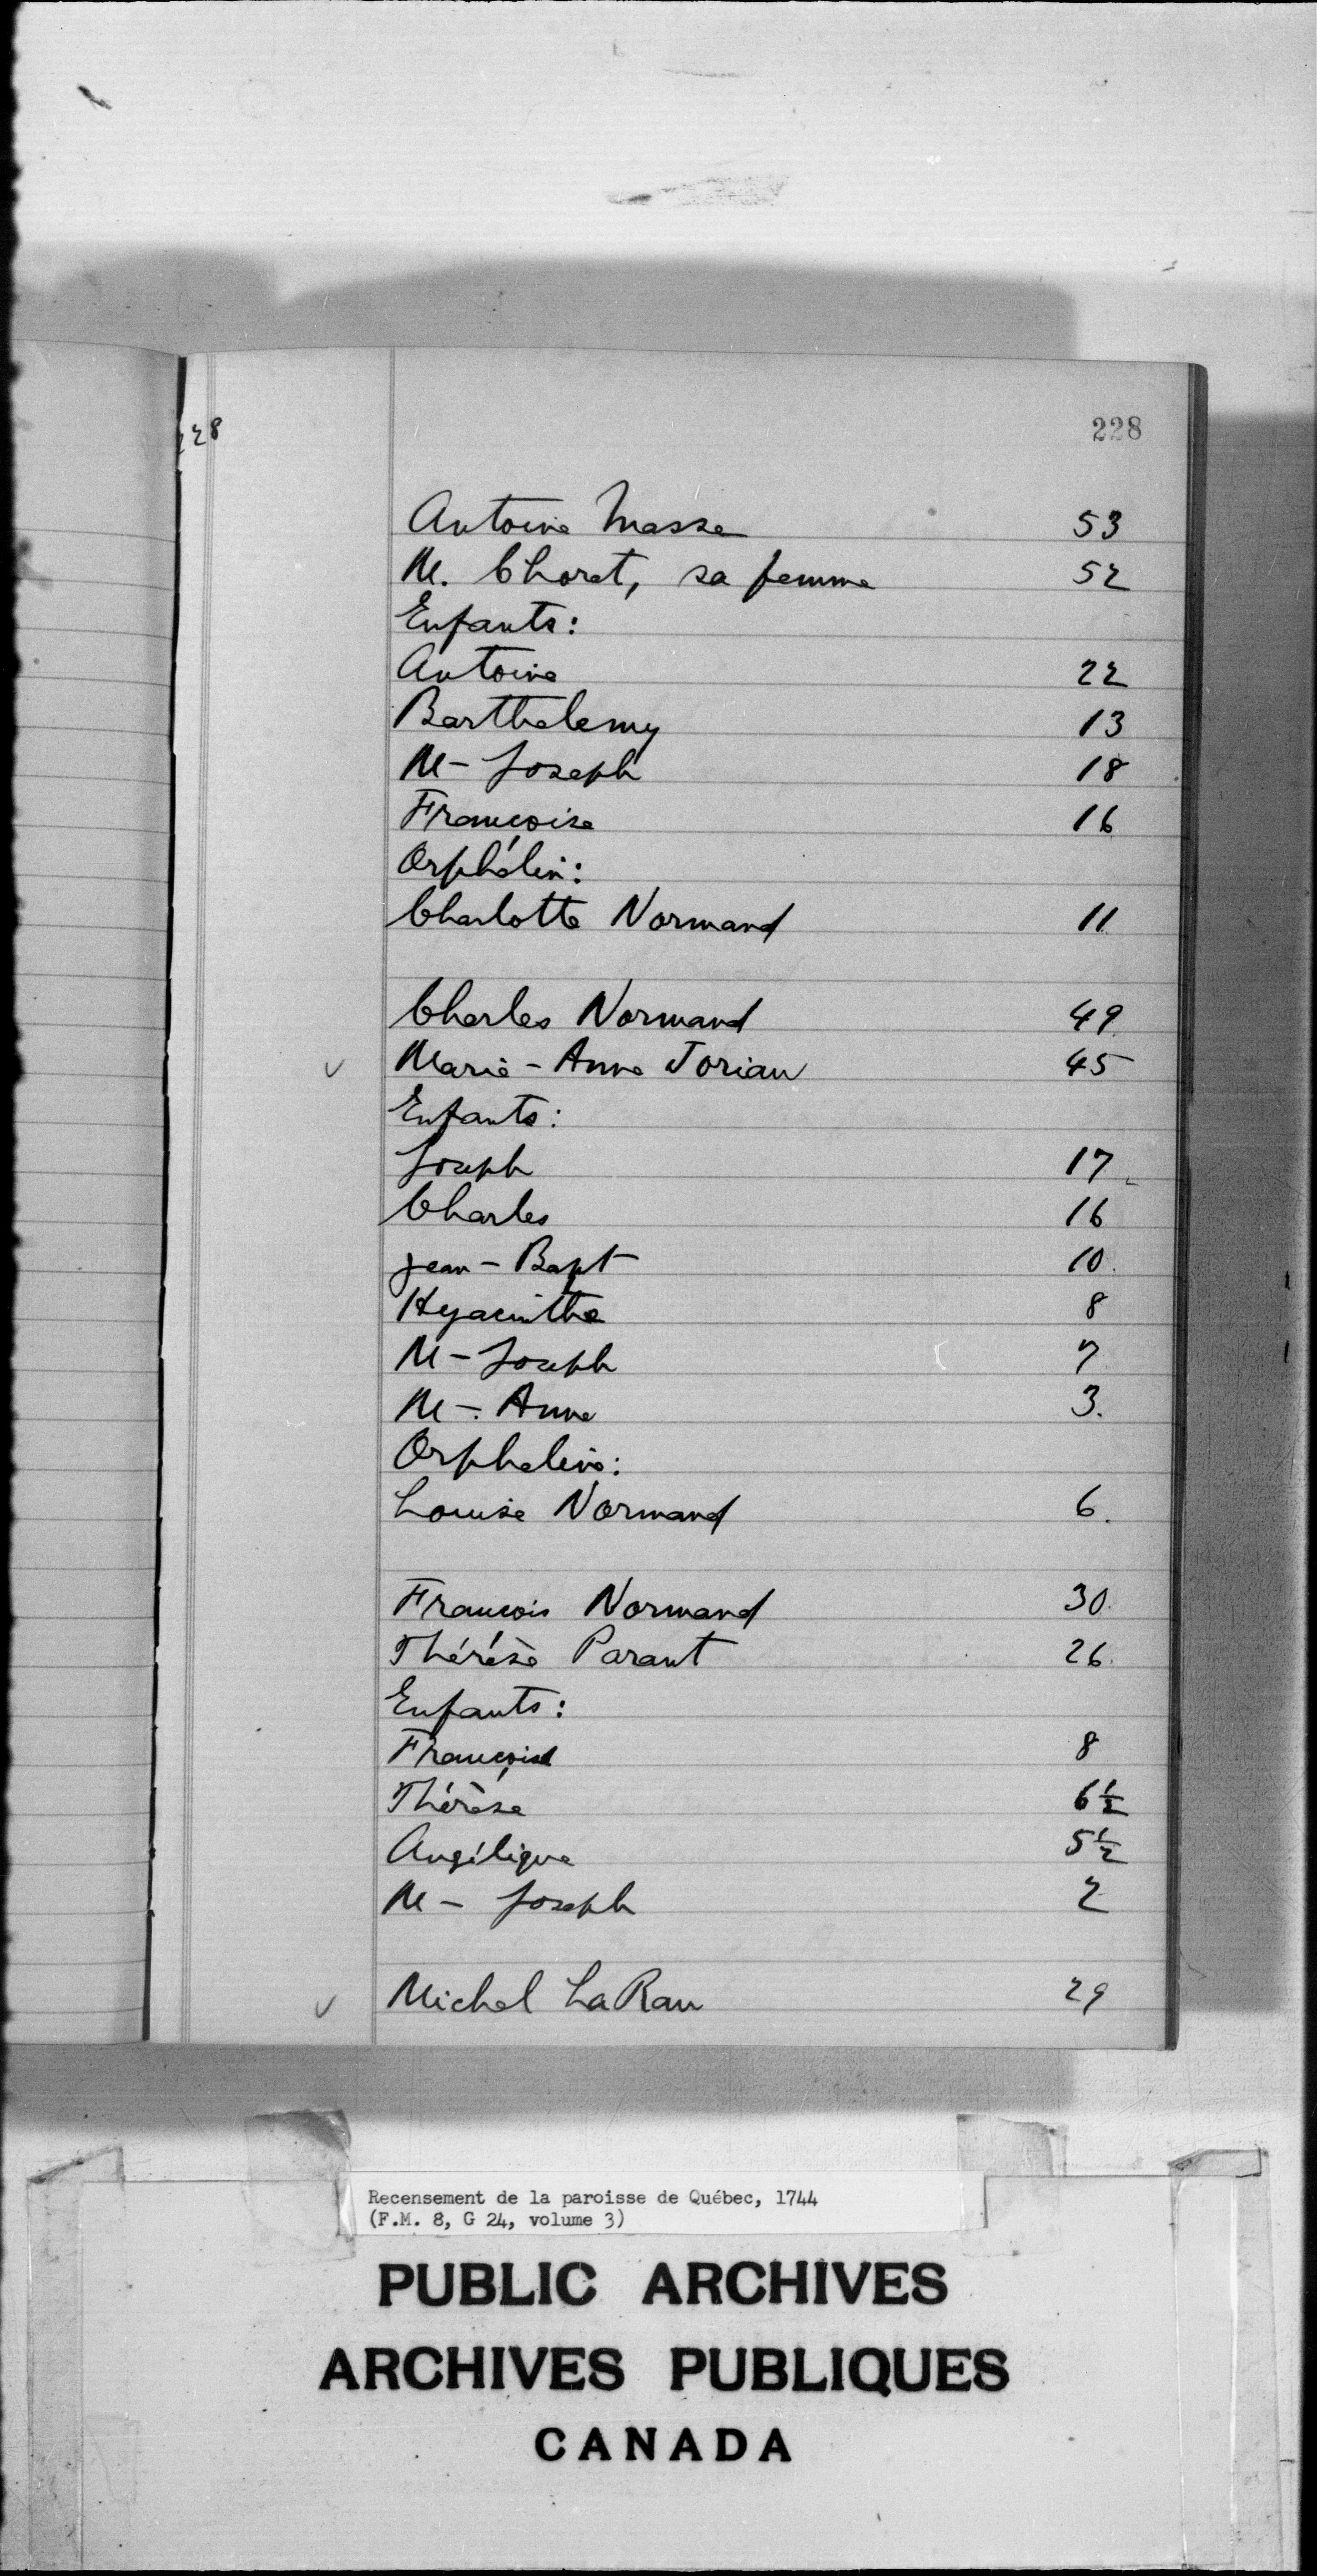 228
228
Antoine Masse 53
M. Choret, sa femme 52
Enfants:
Antoine 22
Barthelemy 13
M- Joseph 18
Françoise 16
Orphélin:
Charlotte Normand 11
Charles Normand 49
Marie-Anne Jorian 45
Enfants:
Joseph 17
Charles 16
Jean-Bapt 10.
Hyacinthe 8
M-Joseph 7
M-. Anne 3.
Orphelins:
Louise Normand 6.
Francois Normand 30.
Thérése Parant 26.
Enfants:
8
Thérèse 6½
Angélique 5½
M- Joseph 2
Michel LaRau 29
Recensement de la paroisse de Québec, 1744
(F.M. 8, G 24, volume 3)
PUBLIC ARCHIVES
ARCHIVES PUBLIQUES
CANADA